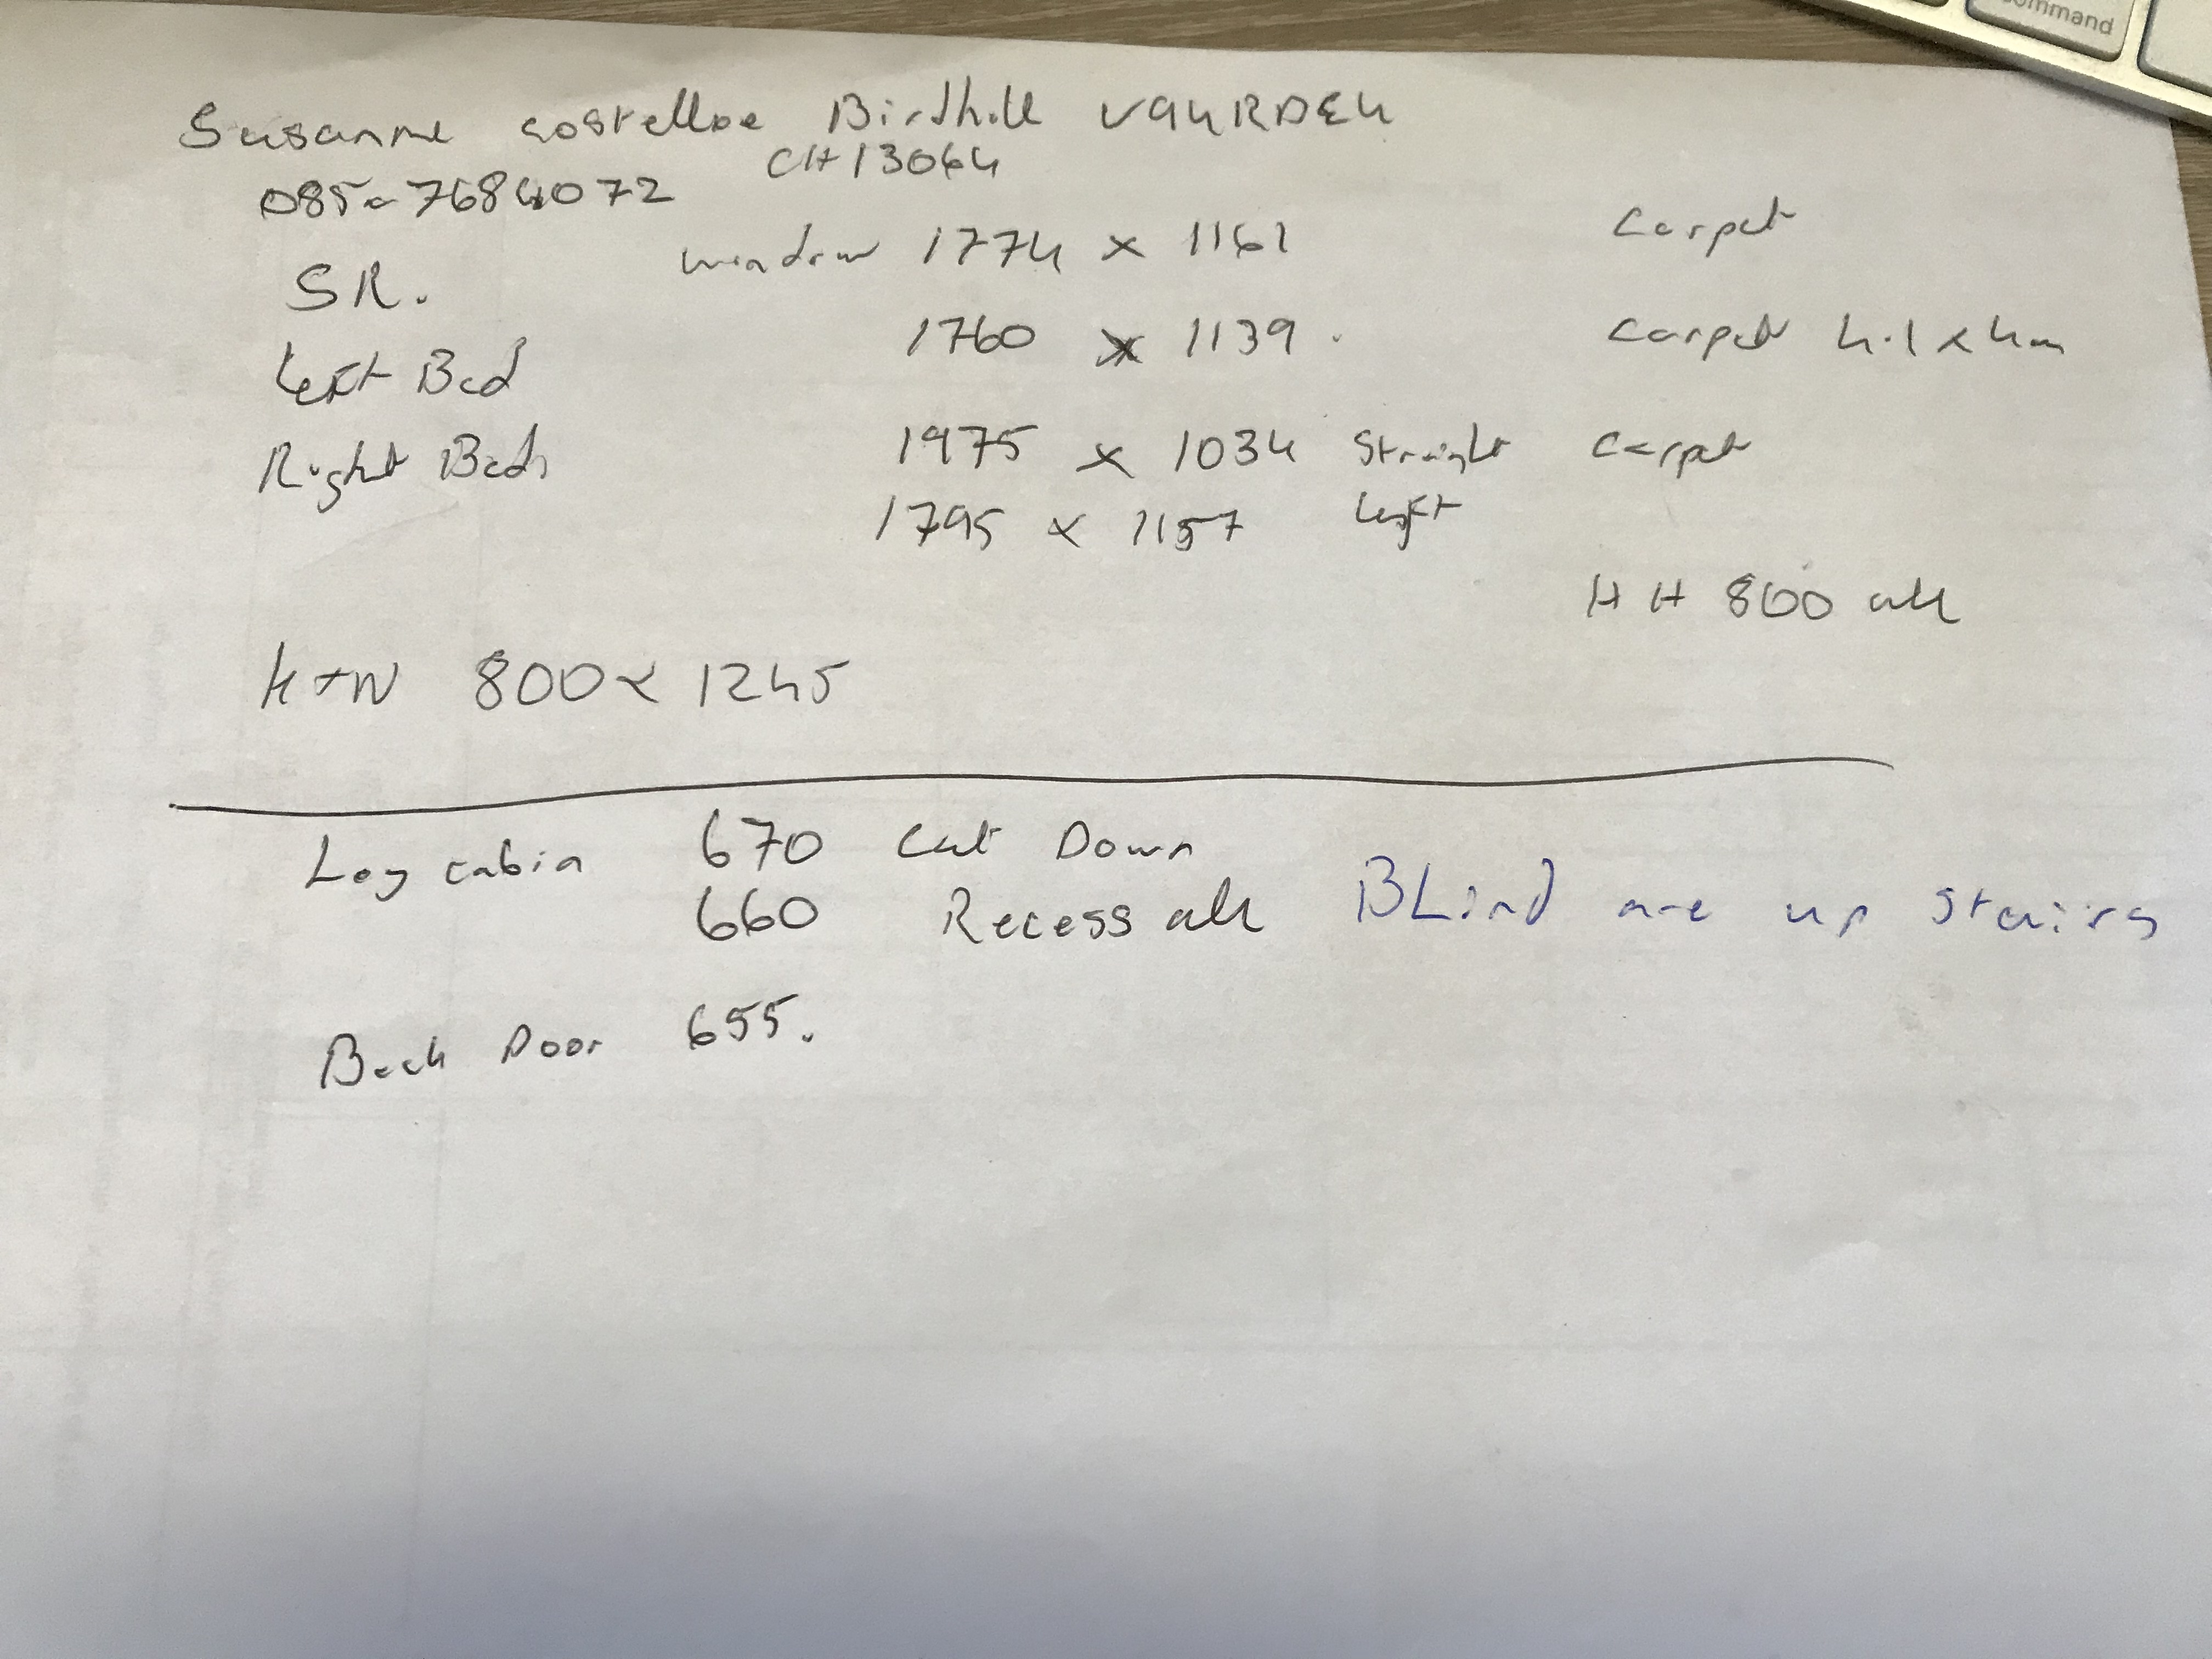 command
Susanne costelloe Birdhill V94RD24
CH13064
085-7684072
window 1774 x 1161 Carpet
SR.
1760 x 1139. Carpet 4.1 x 4m
Left Bed
1975 x 1034 Straight Carpet
Right Bed
1795 x 1157 Left
HH 800 all
800 x 1245
Log cabin 670 Cut Down
660 Recess all BLind are up stairs
Back Door 655.